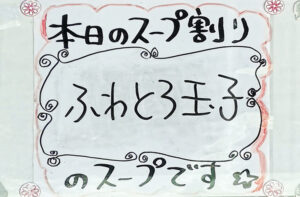 本日のスープ割り
ふわとろ玉子
のスープです☆